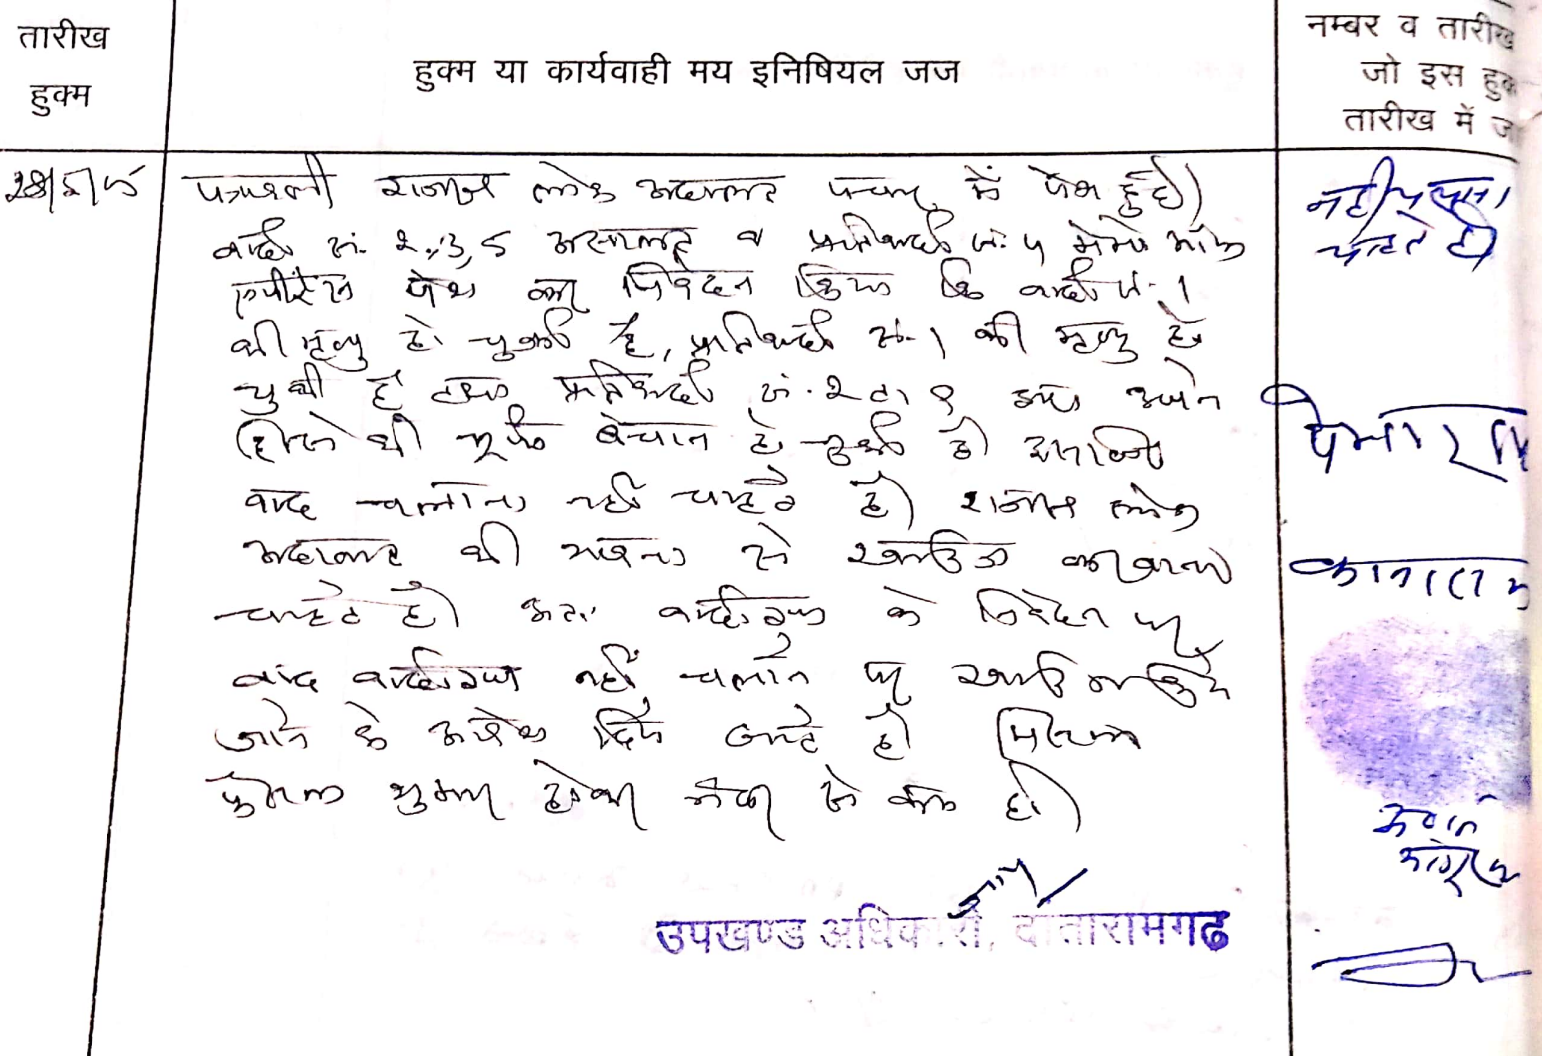 तारीख
हुक्म
हुक्म या कार्यवाही मय इनिषियल जज
नम्बर व तारीख
जो इस हुक
तारीख में ज
पत्रावली राजस्व लोक अदालत में पेश हुई।
वादी सं. 2, 3, 5 असालतन व प्रतिवादी सं. 5 मेमो ऑफ
पेश कर निवेदन किया कि वादी सं. 1
की मृत्यु हो चुकी है, प्रतिवादी सं. 1 की मृत्यु हो
चुकी है तथा प्रतिवादी सं. 2 ता 9 द्वारा अपने
हिस्से की भूमि बेचान हो चुकी है। इसलिए
वाद चलाना नहीं चाहते है। राजस्व लोक
अदालत की भावना से खारिज करवाना
चाहते है। अतः वादीगण के निवेदन पर
वाद वादीगण नहीं चलाने पर खारिज किये
जाने के आदेश दिये जाते है। मिसल
फैसल शुमार होकर नंबर से कम हो।
उपखण्ड अधिकारी, दांतारामगढ
नहीं चलाना
चाहते है।